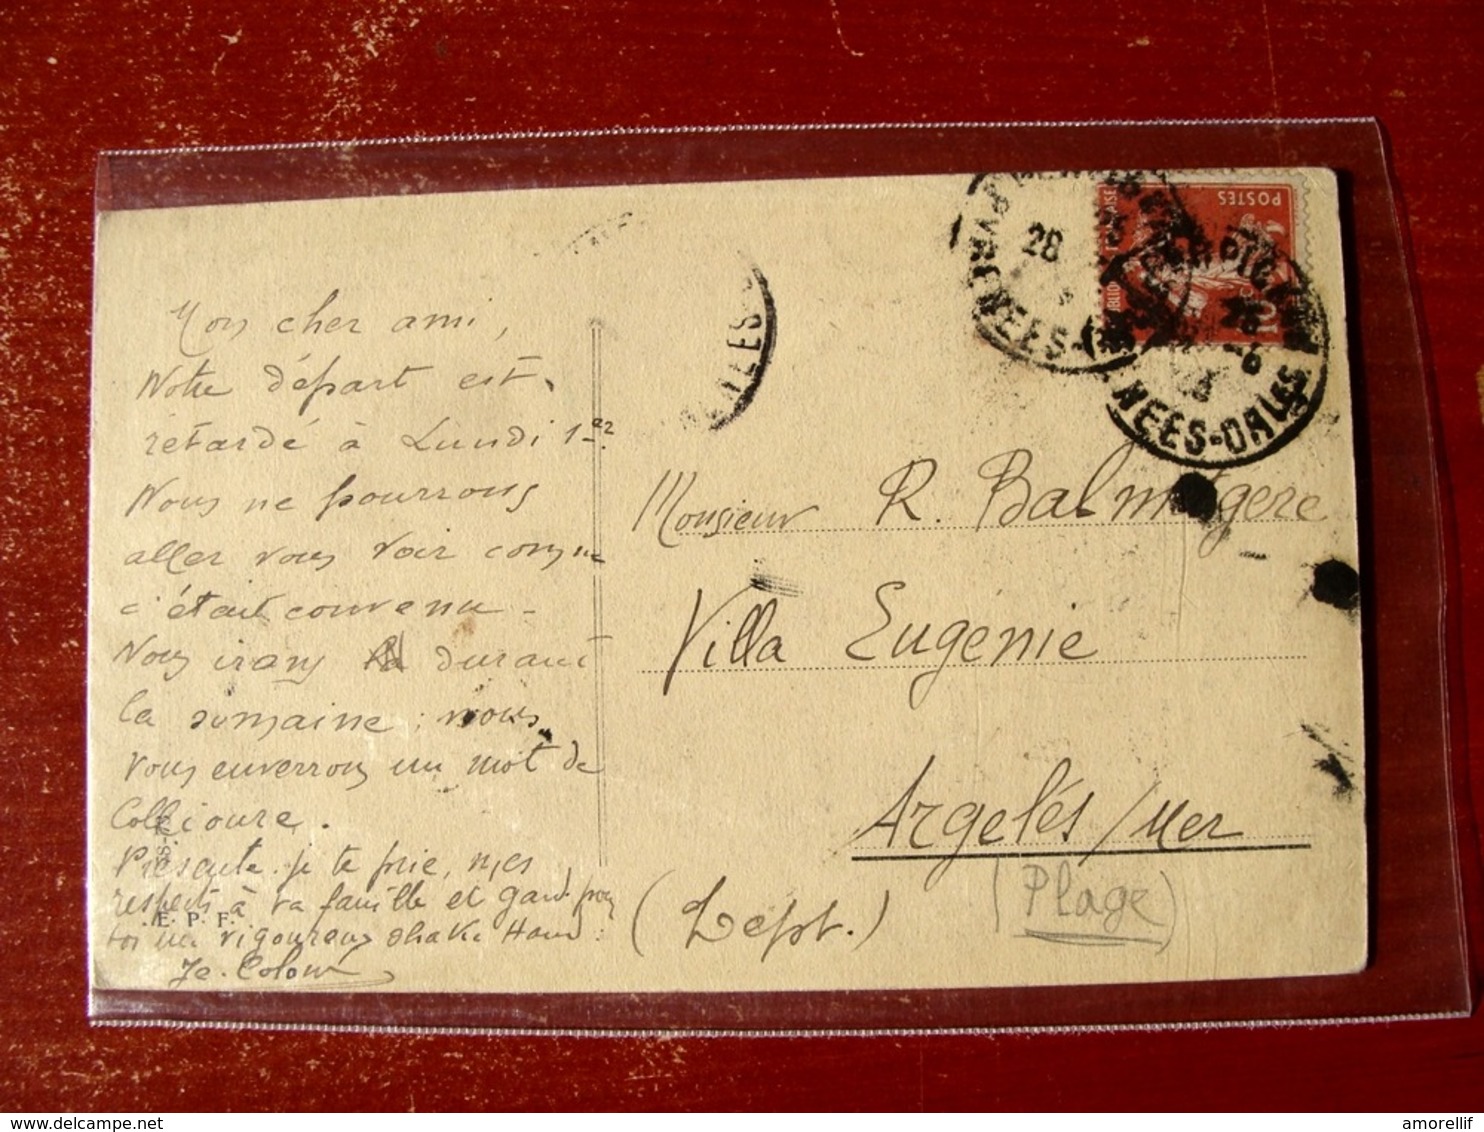 Mon cher ami,
Notre départ est
retardé à Lundi 1er
Nous ne pourrons
aller vous voir comme
c'était convenu -
Nous irons durant
la semaine, nous
vous enverrons un mot de
Collioure.
Présente je te prie, mes
respects à ta famille et garde pour
toi un vigoureux shake Hand.
E. P. F.
POSTES
10
28
PYRENEES-
NEES-ORLES
LLES
Monsieur R. Balmigère
Villa Eugénie
Argelés/Mer
(Dept.)
(Plage)
amorellif